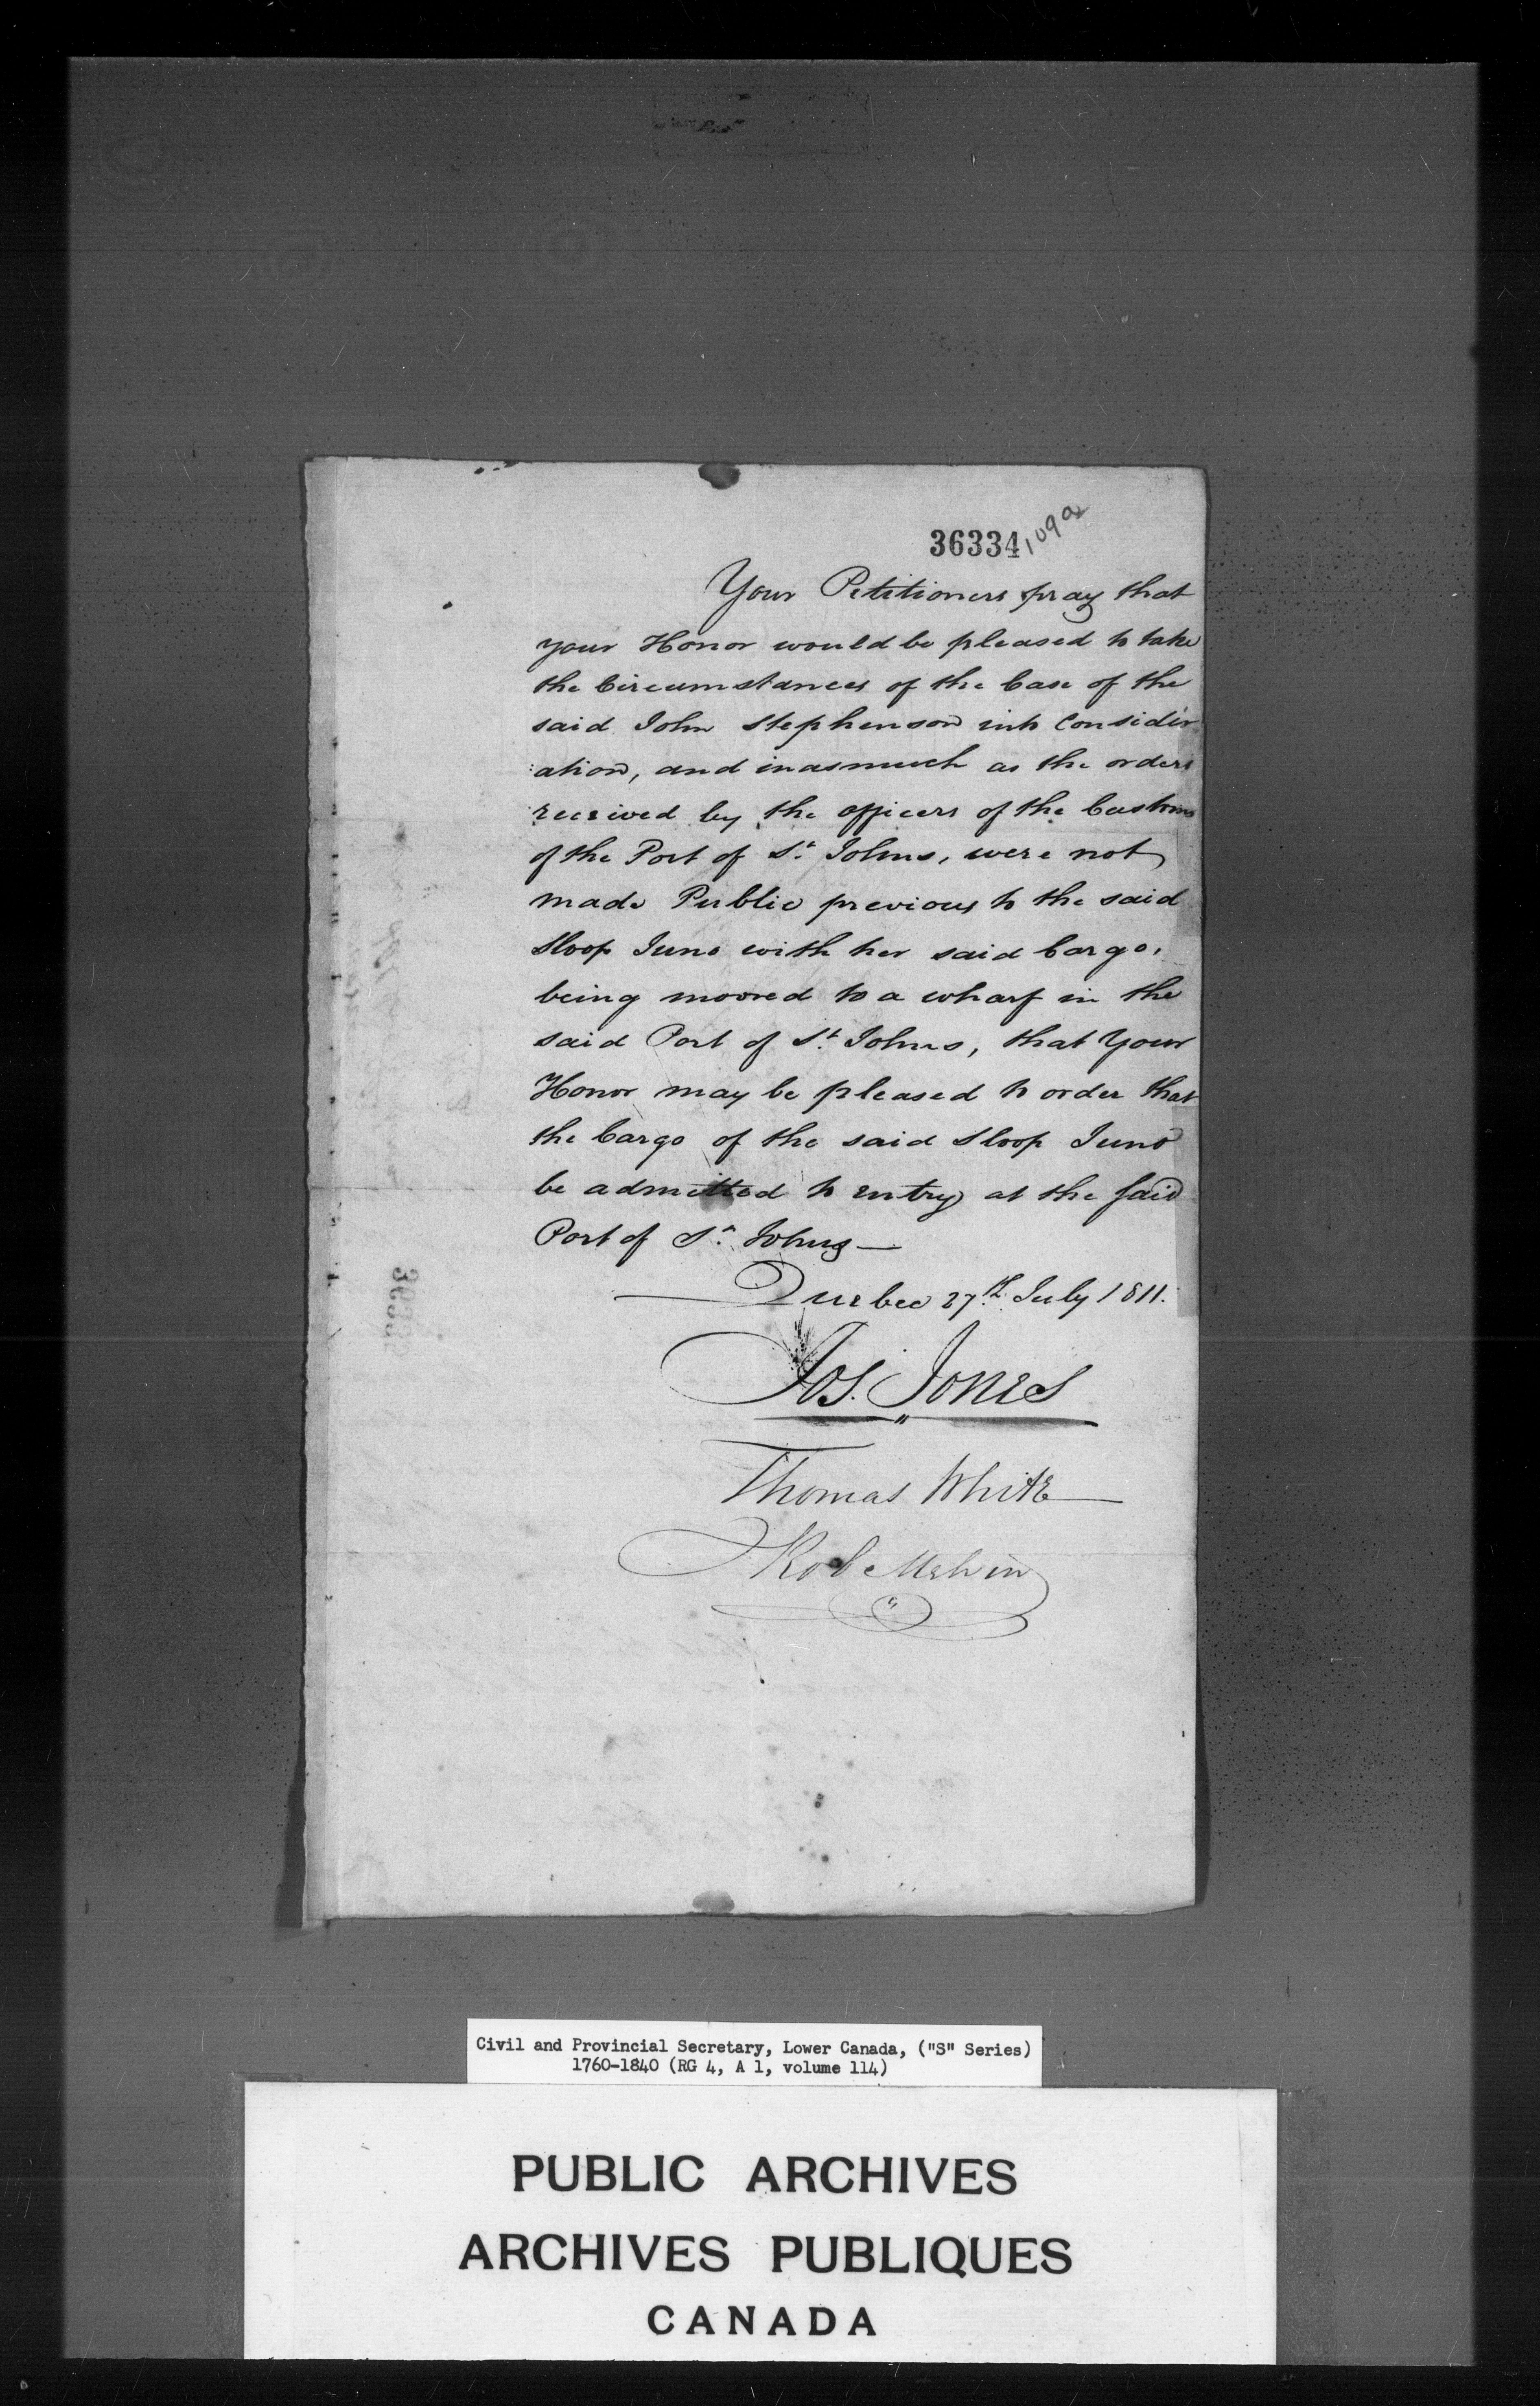 36334 109a
Your Petitioners pray that
your Honor would be pleased to take
the Circumstances of the Case of the
said John Stephenson into Consider
:ation, and inasmuch as the orders
received by the officers of the Customs
of the Port of St. Johns, were not
made Public previous to the said
Sloop Juno with her said Cargo,
being moored to a wharf in the
said Port of St. Johns, that Your
Honor may be pleased to order that
the Cargo of the said Sloop Juno
be admitted to entry at the said
Port of St. Johns —
Quebec 27th. July 1811.
Jos. Jones
Thomas White
Rob Melvin
Civil and Provincial Secretary, Lower Canada, ("S" Series)
1760-1840 (RG 4, A 1, volume 114)
PUBLIC ARCHIVES
ARCHIVES PUBLIQUES
CANADA